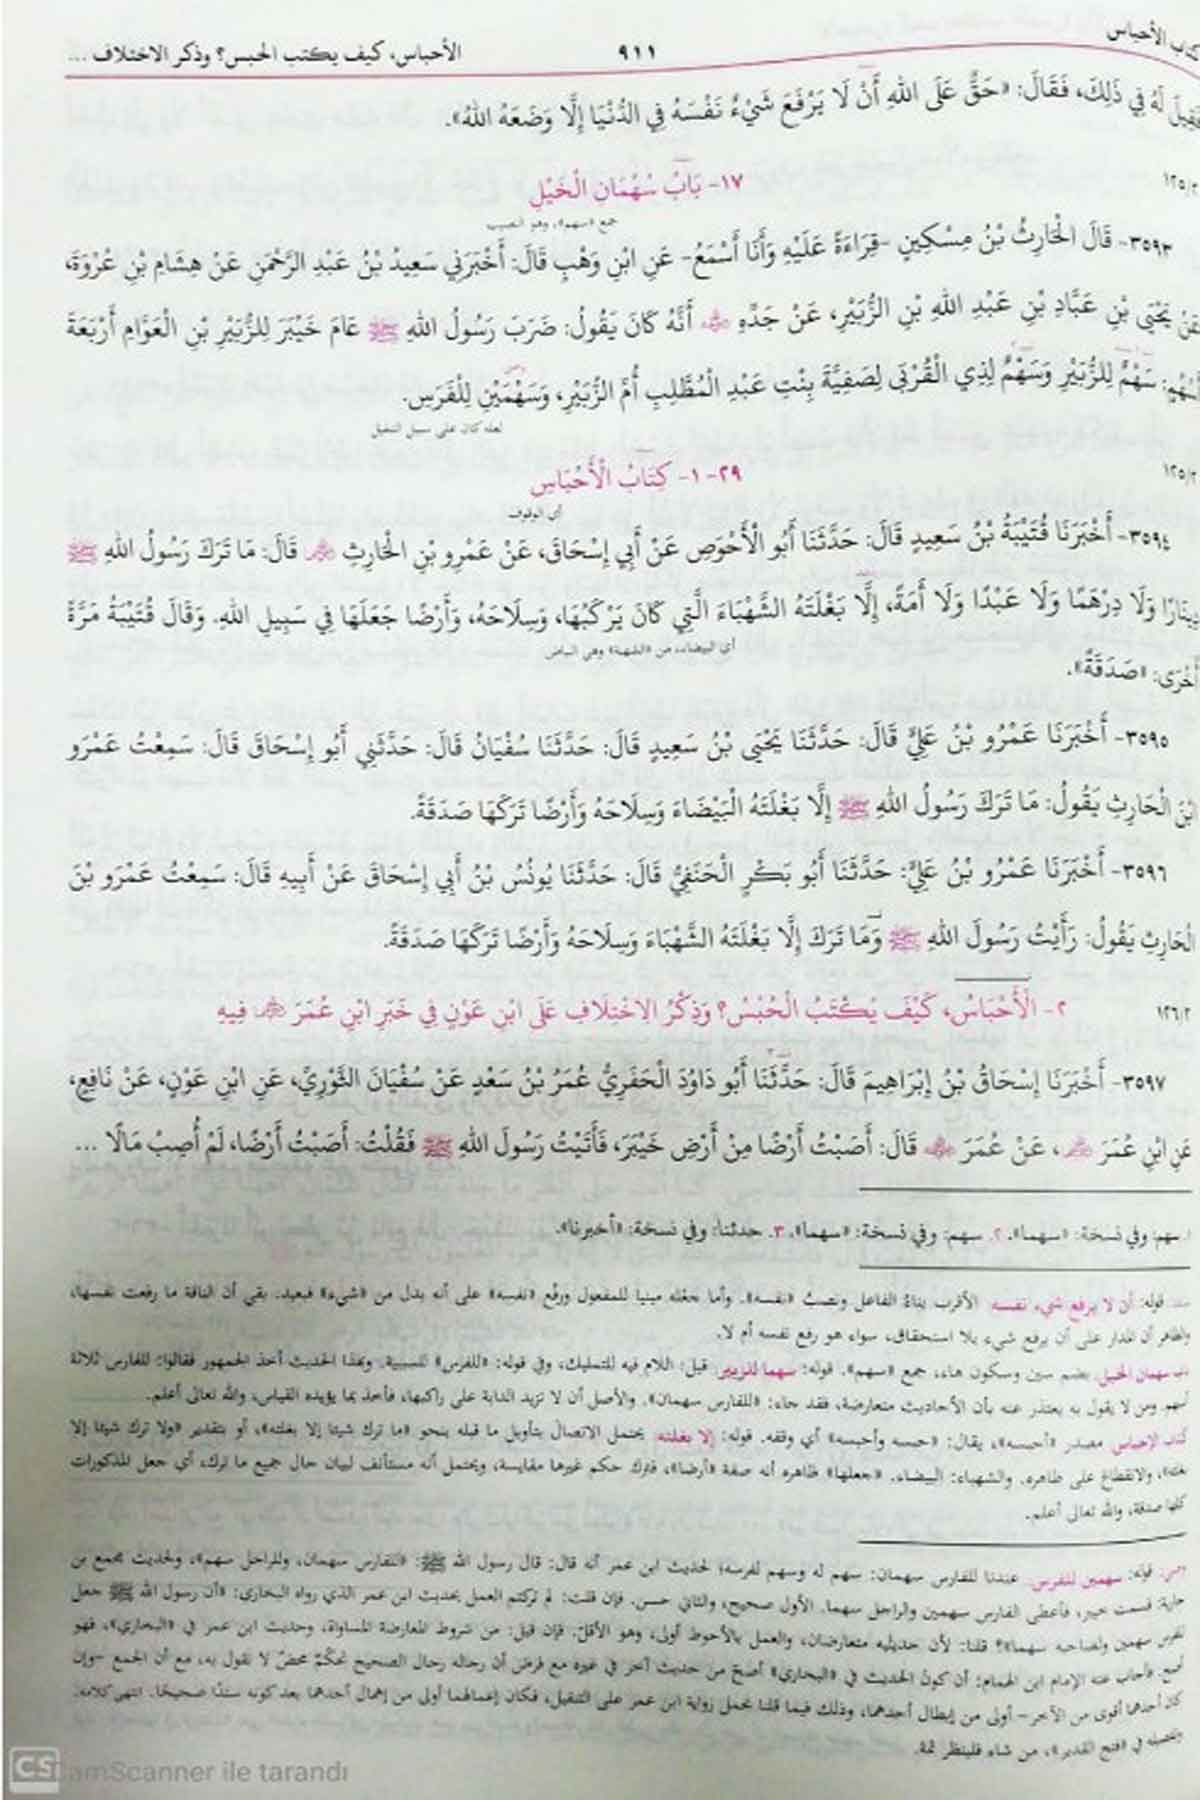 كتاب الأحباس
٩١١
الأحباس، كيف يكتب الحبس؟ وذكر الاختلاف ...
فَقِيلَ لَهُ فِي ذَلِكَ، فَقَالَ: «حَقٌّ عَلَى اللهِ أَنْ لَا يَرْفَعَ شَيْءٌ نَفْسَهُ فِي الدُّنْيَا إِلَّا وَضَعَهُ اللهُ».
١٢٥/٢
١٧- بَابُ سُهْمَانِ الْخَيْلِ
جمع «سهم»، وهو النصيب
٣٥٩٣- قَالَ الْحَارِثُ بْنُ مِسْكِينٍ -قِرَاءَةً عَلَيْهِ وَأَنَا أَسْمَعُ- عَنِ ابْنِ وَهْبٍ قَالَ: أَخْبَرَنِي سَعِيدُ بْنُ عَبْدِ الرَّحْمَنِ عَنْ هِشَامِ بْنِ عُرْوَةَ،
عَنْ يَحْيَى بْنِ عَبَّادِ بْنِ عَبْدِ اللهِ بْنِ الزُّبَيْرِ، عَنْ جَدِّهِ ﷺ أَنَّهُ كَانَ يَقُولُ: ضَرَبَ رَسُولُ اللهِ ﷺ عَامَ خَيْبَرَ لِلزُّبَيْرِ بْنِ الْعَوَّامِ أَرْبَعَةَ
أَسْهُمٍ: سَهْمٌ لِلزُّبَيْرِ وَسَهْمٌ لِذِي الْقُرْبَى لِصَفِيَّةَ بِنْتِ عَبْدِ الْمُطَّلِبِ أُمِّ الزُّبَيْرِ، وَسَهْمَيْنِ لِلْفَرَسِ.
لعله كان على سبيل التنفيل
١٢٥/٢
٢٩-١- كِتَابُ الْأَحْبَاسِ
أي الوقوف
٣٥٩٤- أَخْبَرَنَا قُتَيْبَةُ بْنُ سَعِيدٍ قَالَ: حَدَّثَنَا أَبُو الْأَحْوَصِ عَنْ أَبِي إِسْحَاقَ، عَنْ عَمْرِو بْنِ الْحَارِثِ ﵁ قَالَ: مَا تَرَكَ رَسُولُ اللهِ ﷺ
دِينَارًا وَلَا دِرْهَمًا وَلَا عَبْدًا وَلَا أَمَةً، إِلَّا بَغْلَتَهُ الشَّهْبَاءَ الَّتِي كَانَ يَرْكَبُهَا، وَسِلَاحَهُ، وَأَرْضًا جَعَلَهَا فِي سَبِيلِ اللهِ. وَقَالَ قُتَيْبَةُ مَرَّةً
أي البيضاء، من «الشهبة» وهي البياض
أُخْرَى: «صَدَقَةً».
٣٥٩٥- أَخْبَرَنَا عَمْرُو بْنُ عَلِيٍّ قَالَ: حَدَّثَنَا يَحْيَى بْنُ سَعِيدٍ قَالَ: حَدَّثَنَا سُفْيَانُ قَالَ: حَدَّثَنِي أَبُو إِسْحَاقَ قَالَ: سَمِعْتُ عَمْرَو
ابْنَ الْحَارِثِ يَقُولُ: مَا تَرَكَ رَسُولُ اللهِ ﷺ إِلَّا بَغْلَتَهُ الْبَيْضَاءَ وَسِلَاحَهُ وَأَرْضًا تَرَكَهَا صَدَقَةً.
٣٥٩٦- أَخْبَرَنَا عَمْرُو بْنُ عَلِيٍّ: حَدَّثَنَا أَبُو بَكْرٍ الْحَنَفِيُّ قَالَ: حَدَّثَنَا يُونُسُ بْنُ أَبِي إِسْحَاقَ عَنْ أَبِيهِ قَالَ: سَمِعْتُ عَمْرَو بْنَ
الْحَارِثِ يَقُولُ: رَأَيْتُ رَسُولَ اللهِ ﷺ وَمَا تَرَكَ إِلَّا بَغْلَتَهُ الشَّهْبَاءَ وَسِلَاحَهُ وَأَرْضًا تَرَكَهَا صَدَقَةً.
١٢٦/٢
٢- الْأَحْبَاسُ، كَيْفَ يُكْتَبُ الْحُبْسُ؟ وَذِكْرُ الِاخْتِلَافِ عَلَى ابْنِ عَوْنٍ فِي خَبَرِ ابْنِ عُمَرَ ﵄ فِيهِ
٣٥٩٧- أَخْبَرَنَا إِسْحَاقُ بْنُ إِبْرَاهِيمَ قَالَ: حَدَّثَنَا أَبُو دَاوُدَ الْحَفَرِيُّ عُمَرُ بْنُ سَعْدٍ عَنْ سُفْيَانَ الثَّوْرِيِّ، عَنِ ابْنِ عَوْنٍ، عَنْ نَافِعٍ،
عَنِ ابْنِ عُمَرَ ﵄، عَنْ عُمَرَ ﵁ قَالَ: أَصَبْتُ أَرْضًا مِنْ أَرْضِ خَيْبَرَ، فَأَتَيْتُ رَسُولَ اللهِ ﷺ فَقُلْتُ: أَصَبْتُ أَرْضًا، لَمْ أُصِبْ مَالًا ...
١. سهم: وفي نسخة: «سهما». ٢. سهم: وفي نسخة: «سهما». ٣. حدثنا: وفي نسخة: «أخبرنا».
قوله: أن لا يرفع شيء نفسه الأقرب بناءُ الفاعل ونصبُ «نفسه». وأما جعْله مبنيا للمفعول ورفْع «نفسه» على أنه بدل من «شيء» فبعيد. بقي أن الناقة ما رفعت نفسها،
والظاهر أن المدار على أن يرفع شيء بلا استحقاق، سواء هو رفع نفسه أم لا.
سهمان الخيل بضم سين وسكون هاء، جمع «سهم». قوله: سهما للزبير قيل: اللام فيه للتمليك، وفي قوله: «للفرس» للسببية. وبهذا الحديث أخذ الجمهور فقالوا: للفارس ثلاثة
أسهم. ومن لا يقول به يعتذر عنه بأن الأحاديث متعارضة، فقد جاء: «للفارس سهمان». والأصل أن لا تزيد الدابة على راكبها، فأخذ بما يؤيده القياس، والله تعالى أعلم.
كتاب الإحباس مصدر «أحبسه»، يقال: «حبسه وأحبسه» أي وقفه. قوله: إلا بغلته يحتمل الاتصالَ بتأويل ما قبله بنحو «ما ترك شيئا إلا بغلته»، أو بتقدير «ولا ترك شيئا إلا
بغلته»، والانقطاعَ على ظاهره. والشهباء: البيضاء. «جعلها» ظاهره أنه صفة «أرضا»، فترك حكم غيرها مقايسة، ويحتمل أنه مستأنف لبيان حال جميع ما ترك، أي جعل المذكورات
كلها صدقة، والله تعالى أعلم.
قوله: سهمين للفرس عندنا للفارس سهمان: سهم له وسهم لفرسه؛ لحديث ابن عمر أنه قال: قال رسول الله ﷺ: «للفارس سهمان، وللراجل سهم»، ولحديث مجمع بن
جارية: قسمت خيبر، فأعطى الفارس سهمين والراجل سهما. الأول صحيح، والثاني حسن. فإن قلت: لم تركتم العمل بحديث ابن عمر الذي رواه البخاري: «أن رسول الله ﷺ جعل
للفرس سهمين ولصاحبه سهما»؟ قلنا: لأن حديثيه متعارضان، والعمل بالأحوط أولى، وهو الأقل. فإن قيل: من شروط المعارضة المساواة، وحديث ابن عمر في «البخاري»، فهو
أصح. فأجاب عنه الإمام ابن الهمام: أن كون الحديث في «البخاري» أصحّ من حديث آخر في غيره مع فرض أن رجاله رجال الصحيح تحكّمٌ محضٌ لا نقول به، مع أن الجمع -وإن
كان أحدهما أقوى من الآخر- أولى من إبطال أحدهما، وذلك فيما قلنا بحمل رواية ابن عمر على التنفيل، فكان إعمالهما أولى من إهمال أحدهما بعد كونه سندًا صحيحًا. انتهى كلامه.
وتفصيله في «فتح القدير»، من شاء فلينظر ثمة.
CS CamScanner ile tarandı